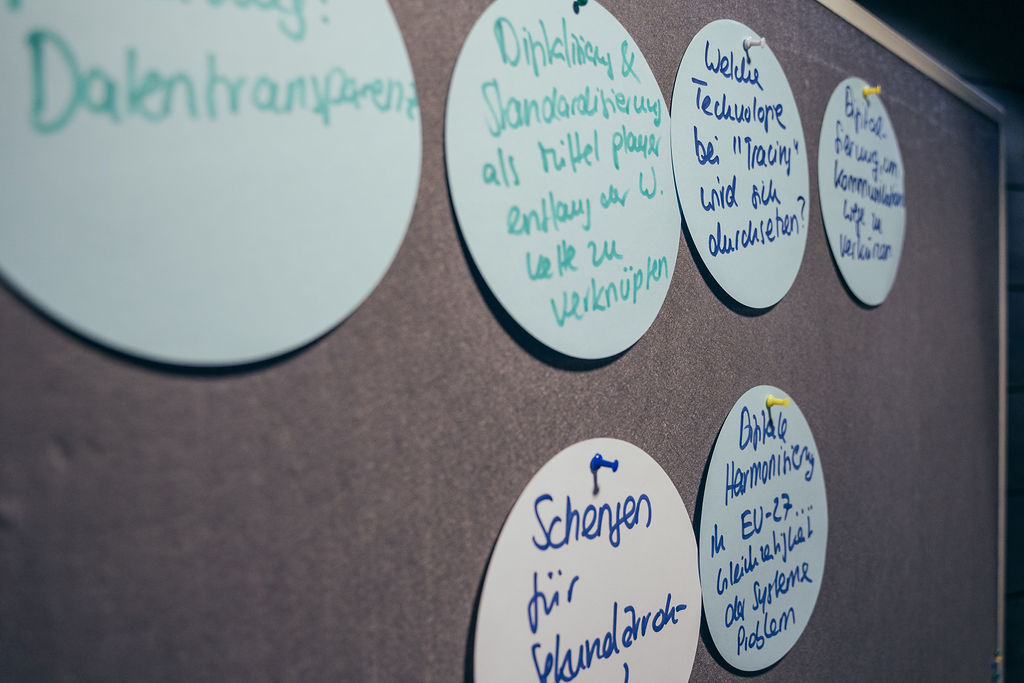 Datentransparenz
Digitalisierung &
Standardisierung
als Mittel player
entlang der W.
kette zu
verknüpfen
Welche
Technologie
bei "Tracing"
wird sich
durchsetzen?
Digitali-
sierung um
kommunikations
wege zu
verkürzen
Schenzen
für
Sekundärroh-
Digitale
Harmonisierung
in EU-27...
Gleichzeitigkeit
der Systeme
Problem